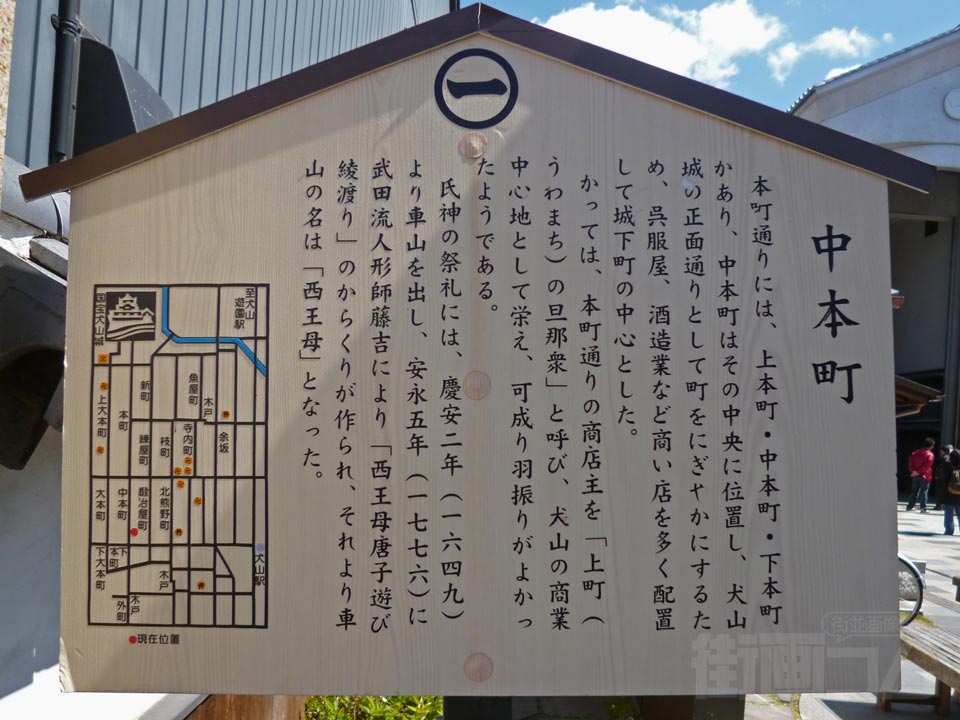 一
中本町
本町通りには、上本町・中本町・下本町
かあり、中本町はその中央に位置し、犬山
城の正面通りとして町をにぎやかにするた
め、呉服屋、酒造業など商い店を多く配置
して城下町の中心とした。
かっては、本町通りの商店主を「上町（
うわまち）の旦那衆」と呼び、犬山の商業
中心地として栄え、可成り羽振りがよかっ
たようである。
氏神の祭礼には、慶安二年（一六四九）
より車山を出し、安永五年（一七七六）に
武田流人形師藤吉により「西王母唐子遊び
綾渡り」のからくりが作られ、それより車
山の名は「西王母」となった。
至犬山遊園駅
国宝犬山城
文
新町
魚屋町
木戸
上大本町
本町
練屋町
枝町
寺内町
余坂
大本町
中本町
鍛冶屋町
北熊野町
下大本町
下本町
木戸
犬山駅
外町
木戸
●現在位置
街並画像
街画コム